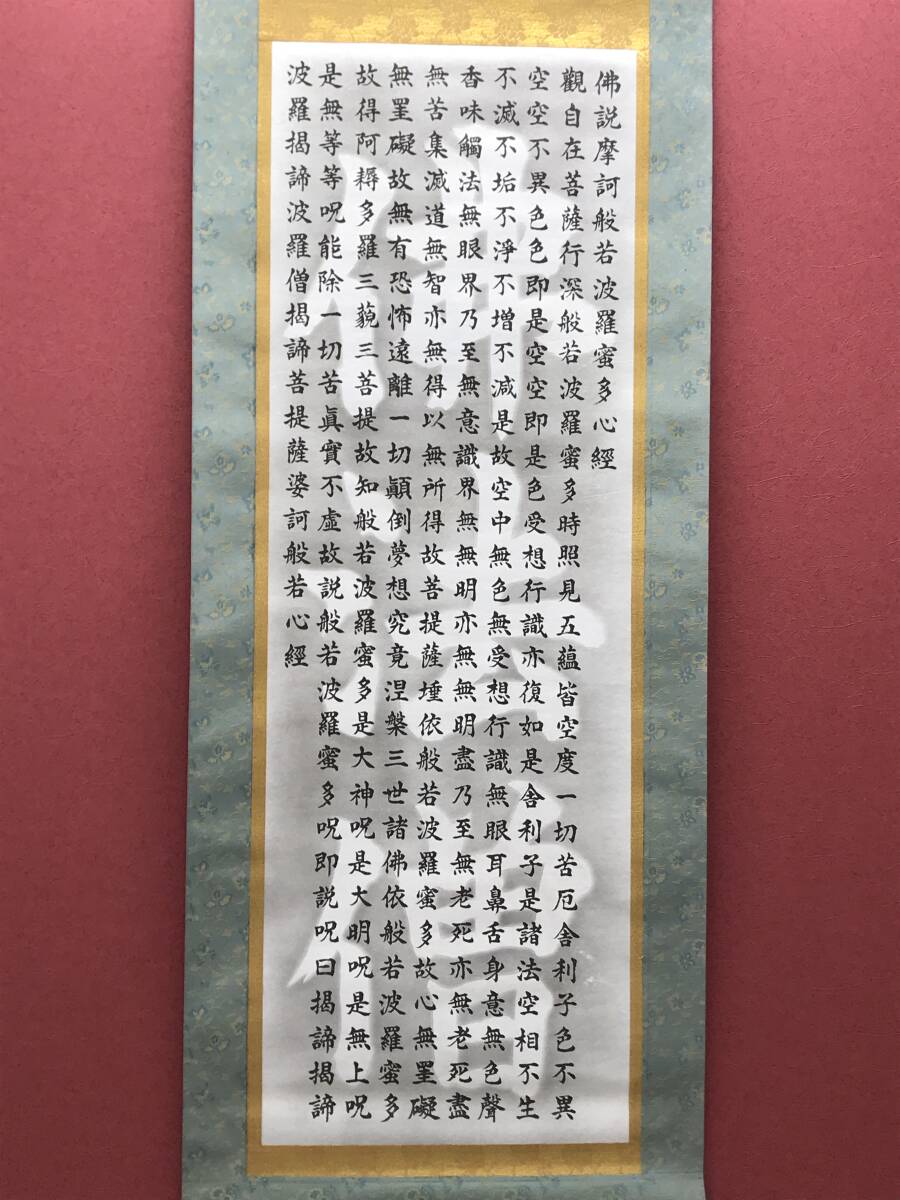 佛説摩訶般若波羅蜜多心經
觀自在菩薩行深般若波羅蜜多時照見五蘊皆空度一切苦厄舎利子色不異
空空不異色色即是空空即是色受想行識亦復如是舎利子是諸法空相不生
不滅不垢不淨不增不減是故空中無色無受想行識無眼耳鼻舌身意無色聲
香味觸法無眼界乃至無意識界無無明亦無無明盡乃至無老死亦無老死盡
無苦集滅道無智亦無得以無所得故菩提薩埵依般若波羅蜜多故心無罣礙
無罣礙故無有恐怖遠離一切顚倒夢想究竟涅槃三世諸佛依般若波羅蜜多
故得阿耨多羅三藐三菩提故知般若波羅蜜多是大神呪是大明呪是無上呪
是無等等呪能除一切苦眞實不虛故説般若波羅蜜多呪即説呪曰揭諦揭諦
波羅揭諦波羅僧揭諦菩提薩婆訶般若心經
佛法僧